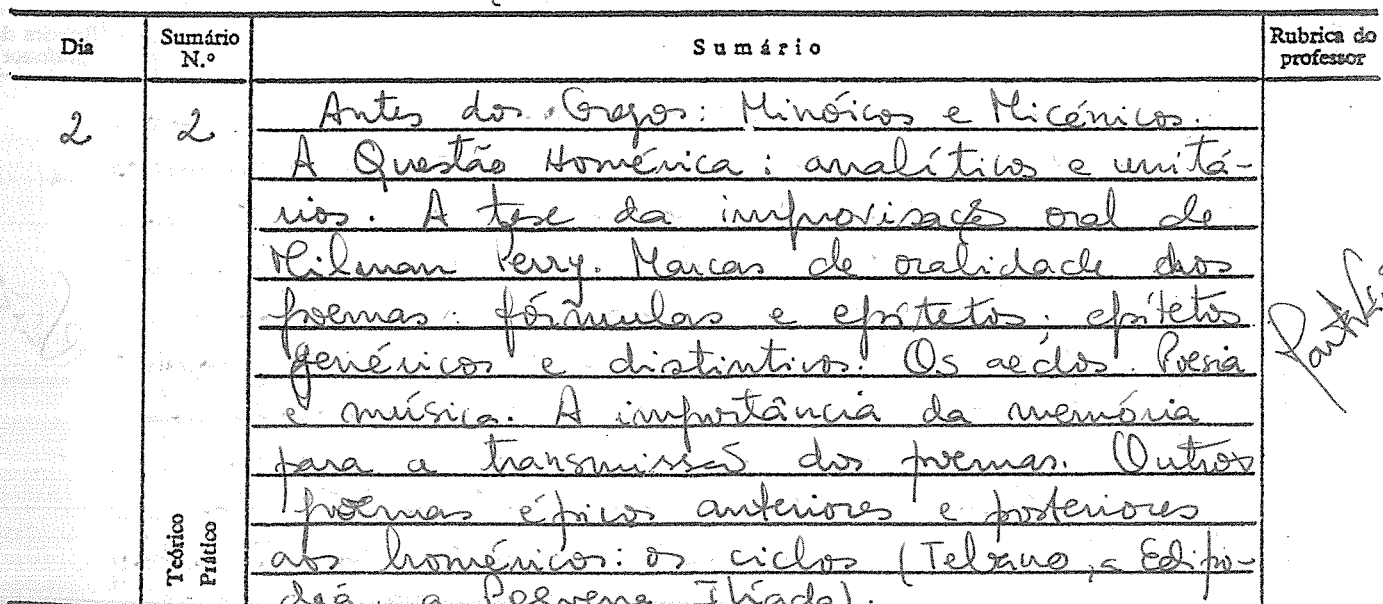 Dia Sumário N.º Sumário Rubrica do professor
2 2 Antes dos Gregos: Minóicos e Micénicos.
A Questão Homérica: analíticos e unitá-
rios. A tese da improvisação oral de
Milman Perry. Marcas de oralidade dos
poemas: fórmulas e epítetos; epítetos
genéricos e distintivos. Os aedos. Poesia
e música. A importância da memória
para a transmissão dos poemas. Outros
poemas épicos anteriores e posteriores
aos homéricos: os ciclos (Tebano, a Edipo-
deia, a Pequena Ilíada).
Teórico
Prático